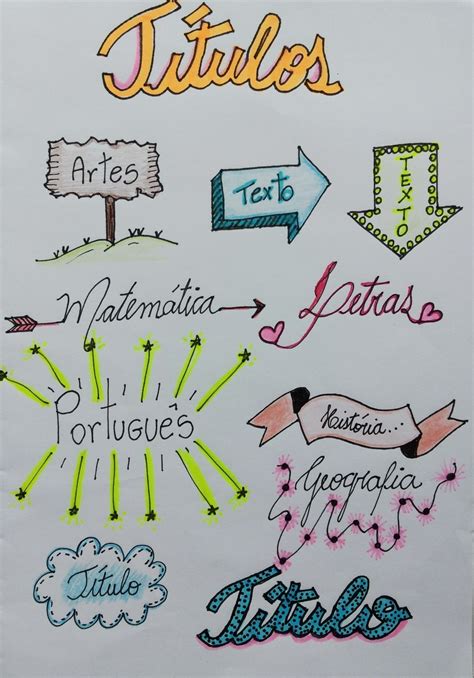 Títulos
Artes
Texto
TEXTO
Matemática
Letras
Português
História...
Geografia
Título
Título